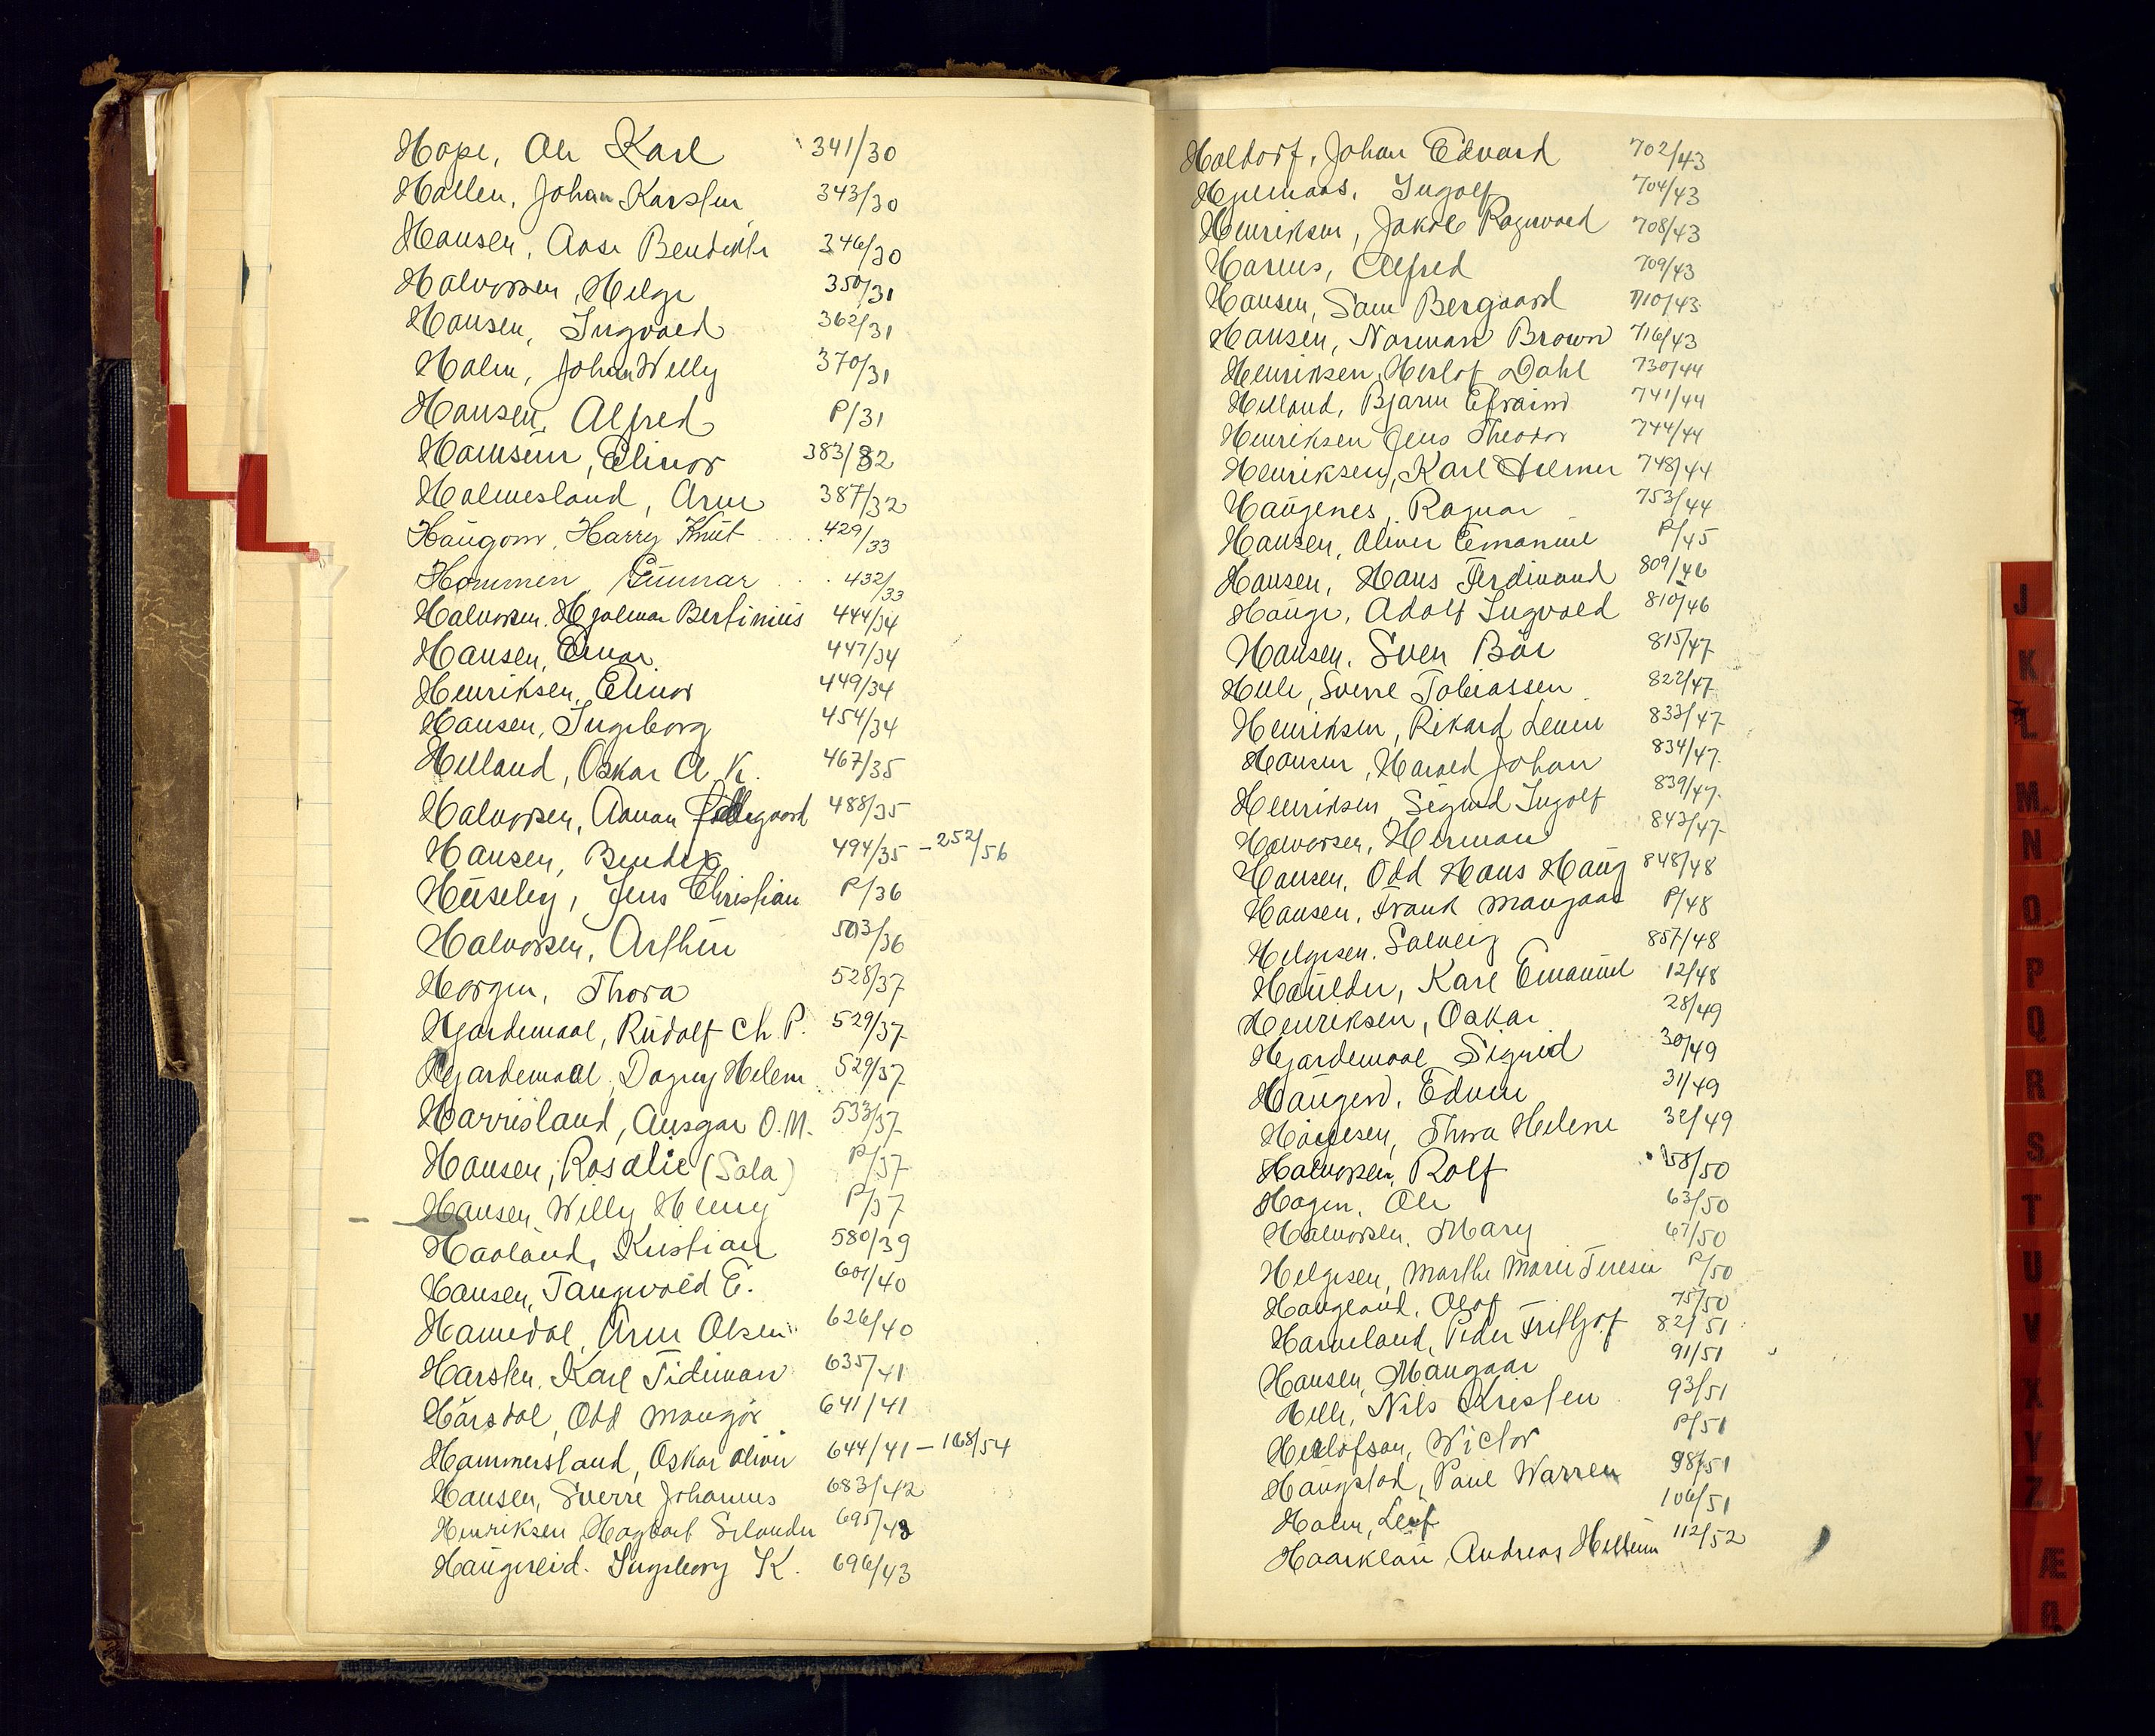 Hope, Ole Karl 341/30
Hollen, Johan Karsten 343/30
Hansen, Aase Bendikte 346/30
Halvorsen, Helge 350/31
Hansen, Ingvald 362/31
Holm, Johan Willy 370/31
Hansen, Alfred P/31
Hamsun, Ellinor 383/32
Holmesland, Arne 387/32
Haugom, Harry Knut 429/33
Hommen, Gunnar 432/33
Halvorsen, Hjalmar Bertinius 444/34
Hansen, Einar 447/34
Henriksen, Elinor 449/34
Hansen, Ingeborg 454/34
Helland, Oskar A. K. 467/35
Halvorsen, Adnan 488/35
Hansen, Bendix 494/35 - 252/56
Huseby, Jens Christian P/36
Halvorsen, Arthur 503/36
Horgen, Thora 528/37
Hjardemaal, Rudolf Ch. P. 529/37
Hjardemaal, Dagny Helene 529/37
Harrisland, Ansgar O.M. 533/37
Hansen, Rosalie (Sala) P/37
Hansen, Willy Henry P/37
Haaland, Kristian 580/39
Hansen, Tangvald E. 601/40
Hamedal, Arne Olsen 626/40
Harsten, Karl Tideman 635/41
Hårsdal, Odd Mangor 641/41
Hammersland, Oskar Oliver 644/41 - 168/54
Hansen, Sverre Johannes 683/42
Henriksen, Hagbart Selander 695/43
Haugereid. Ingeborg K. 696/43
Holdorf, Johan Edvard 702/43
Hjelmaas, Ingolf 704/43
Henriksen, Jakob Ragnvald 708/43
Hareus, Alfred 709/43
Hansen, Sam Bergaard 710/43
Hansen, Norman Brown 716/43
Henriksen, Herlof Dahl 730/44
Helland, Bjarne Efraim 741/44
Henriksen Jens Theodor 744/44
Henriksen, Karl Hilmer 748/44
Haugenes, Ragnar 753/44
Hansen, Oliver Emanuel P/45
Hansen, Hans Ferdinand 809/46
Hauge, Adolf Ingvald 810/46
Hansen, Sven Bøe 815/47
Helle, Sverre Tobiassen 822/47
Henriksen, Rikard Levin 833/47
Hansen, Harald Johan 834/47
Henriksen Sigurd Ingolf 839/47
Halvorsen, Herman 843/47
Hansen, Odd Hans Haug 848/48
Hansen, Frank Mangaas P/48
Helgesen, Solveig 857/48
Haulder, Karl Emanuel 12/48
Henriksen, Oskar 28/49
Hjardemaal Sigrid 30/49
Haugen, Edvin 31/49
Haagesen, Thora Helene 32/49
Halvorsen, Rolf 58/50
Hagen, Ole 63/50
Halvorsen, Mary 67/50
Helgesen, Marthe Marie Teresie P/50
Haugland, Olof 75/50
Harveland, Peder Fritjof 82/51
Hansen, Mangaar 91/51
Helle, Nils Kristen 93/51
Herlofson, Victor P/51
Haugstad, Paul Warren 98/51
Holm, Leif 106/51
Haarklau, Andreas Hellum 112/52
J
K
L
M
N
O
P
Q
R
S
T
U
V
X
Y
Z
Æ
Ø